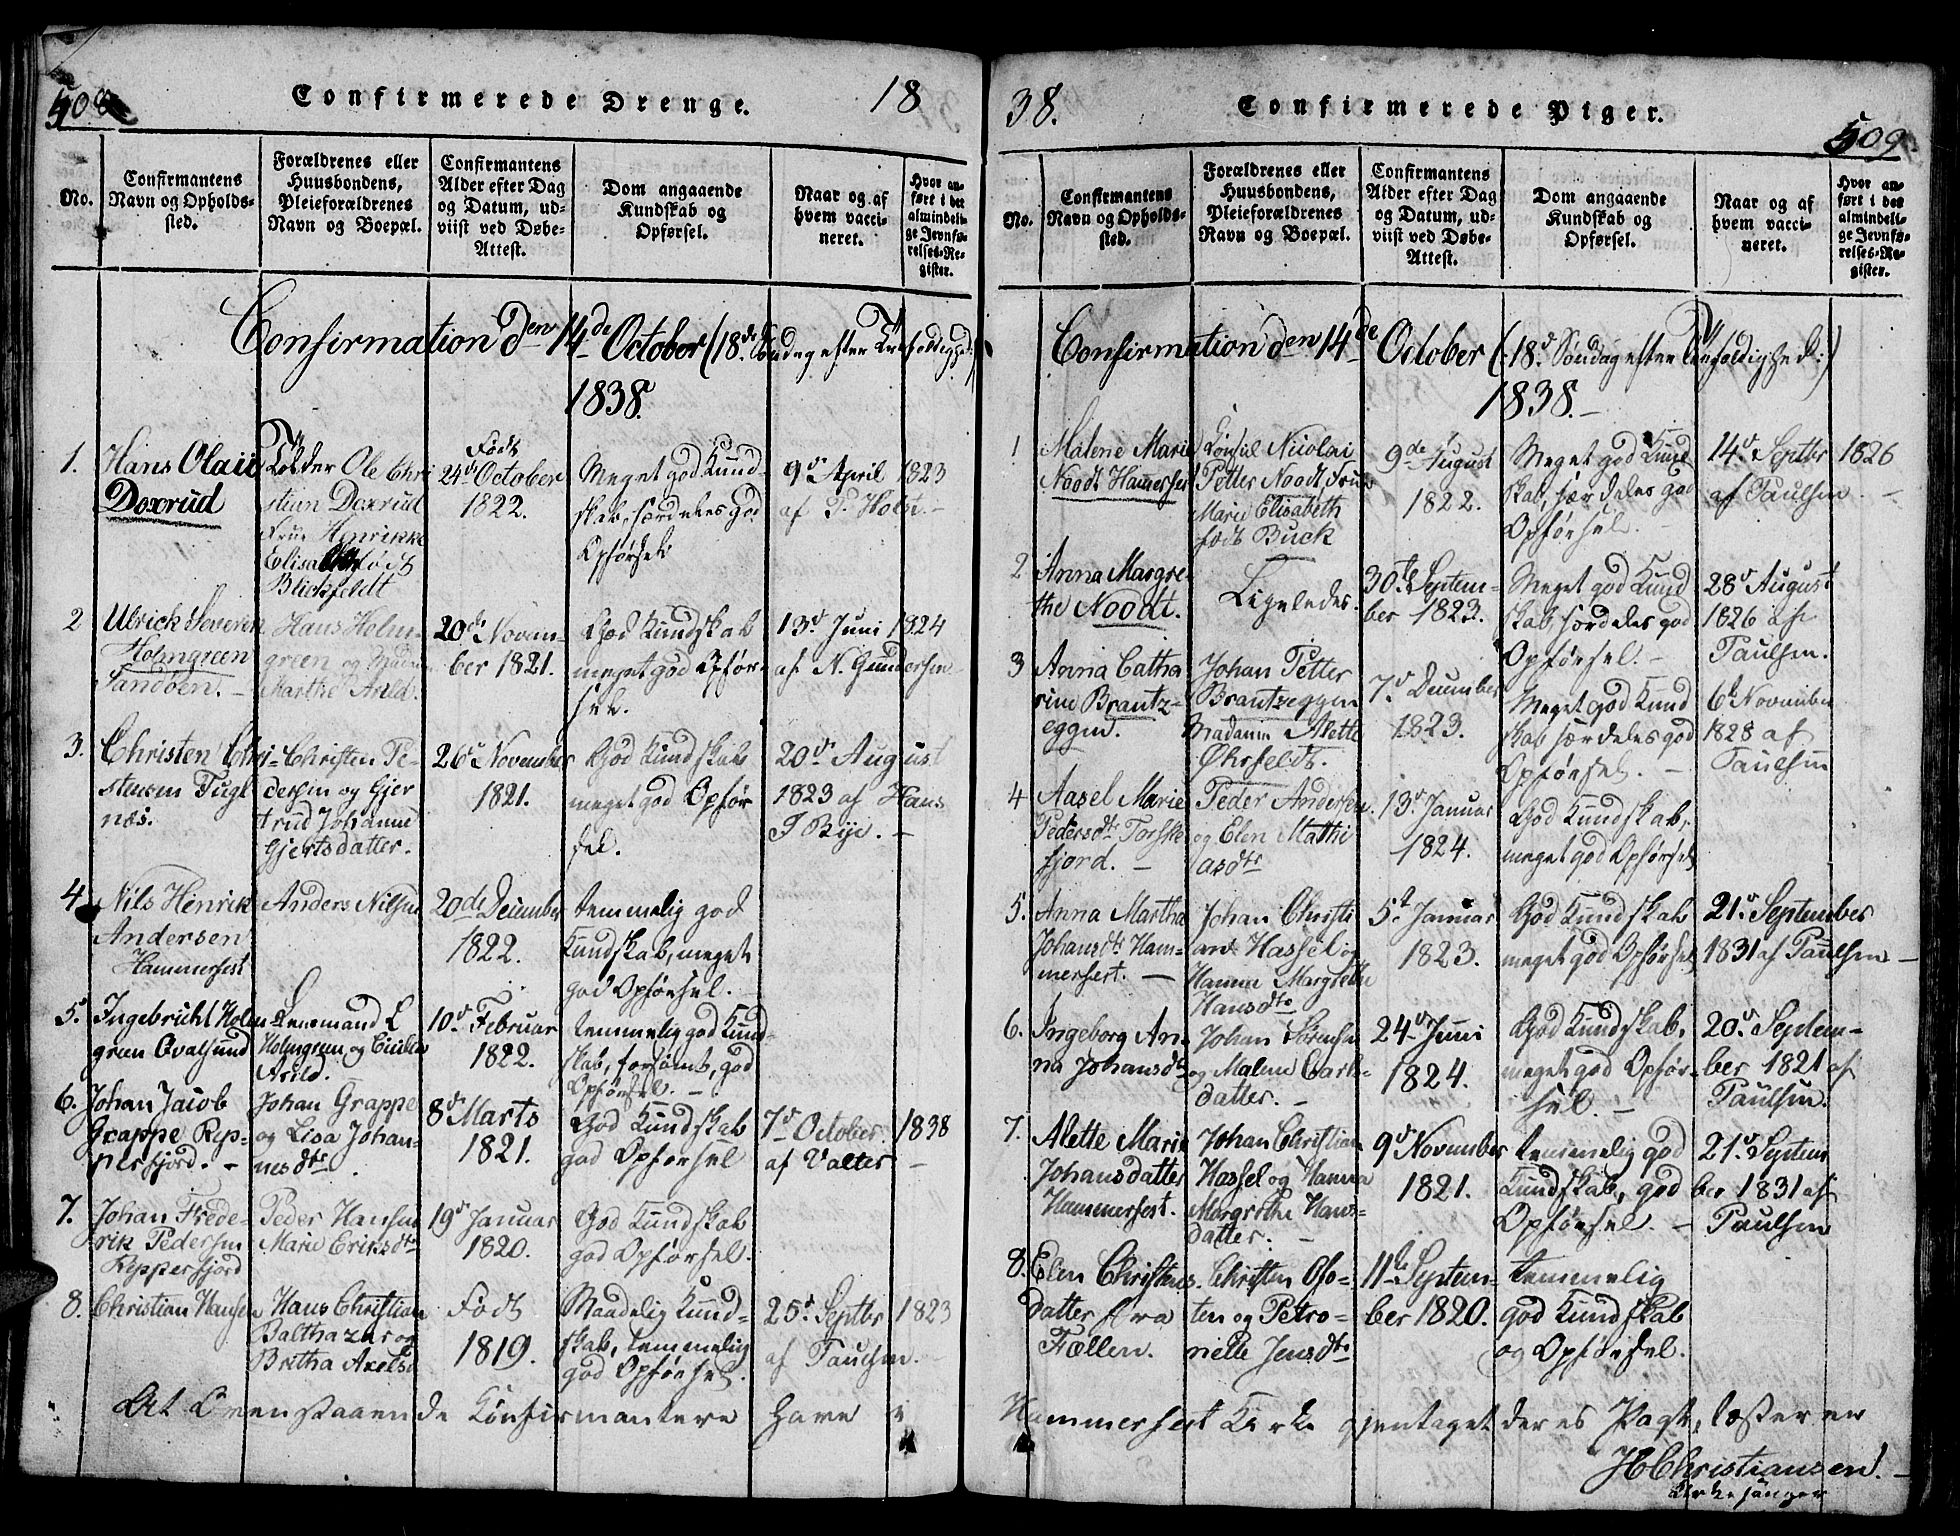 508
Confirmerede Drenge.
18
No.
Confirmantens
Navn og Opholds-
sted.
Forældrenes eller
Huusbondens,
Pleieforældrenes
Navn og Boepæl.
Confirmantens
Alder efter Dag
og Datum, ud-
viist ved Døbe-
Attest.
Dom angaaende
Kundskab og
Opførsel.
Naar og af
hvem vacci-
neret.
Hvor an-
ført i det
almindeli-
ge Jevnfø-
relses-Re-
gister.
Confirmation den 14de October (18de Søndag efter Trefoldighed)
1838.
1.
Hans Olaii
Doxrud
Tolder Ole Chri
stian Doxrud
Frue Henrikke
Elisa født
Blickfeldt
Født
24de October
1822.
Meget god Kund-
skab, særdeles god
Opførsel
9de April 1823
af P. Holst.
2
Ulrick Severin
Holmgreen
Sandøen.
Hans Holm-
green og Mad
Marthe Arild.
20de Novem-
ber 1821.
God Kundskab
meget god Opfør-
sel.
13de Juni 1824
af N. Gundersen
3.
Christen Chri-
stensen Fugl
næs.
Christen Pe-
dersen og Gjer
trud Johanne
Gjertsdatter.
26de November
1821.
God Kundskab
meget god Opfør
sel.
20de August
1823 af Hans
J Bye.
4.
Nils Henrik
Andersen
Hammerfest
Anders Nilsen
20de December
1822.
temmelig god
Kundskab, meget
god Opførsel.
5.
Ingebricht Holm
green Qvalsund
Lensmand E
Holmgreen og Cicilia
Arild.
10de Februar
1822.
temmelig god Kund-
skab, forsømt, god
Opførsel.
6.
Johan Jacob
Grappe Rep-
perfjord.
Johan Grappe
og Lisa Johan-
nesdtr
8de Marts
1821.
God Kundskab
god Opførsel
7de October 1838
af Valter
7.
Johan Frede-
rik Pedersen
Repperfjord
Peder Hansen
Marie Eriksdtr
19de Januar
1820.
God Kundskab
god Opførsel.
8.
Christian Hansen
Hans Christian
Balthazar og
Britha Axelsd
Født
1819.
Maadelig Kund-
skab, temmelig
god Opførsel.
25de Septbr 1823
af Paulsen.
At Ovenstaaende Konfirmantere have i
38.
Confirmerede Piger.
509
No.
Confirmantens
Navn og Opholds-
sted.
Forældrenes eller
Huusbondens,
Pleieforældrenes
Navn og Boepæl.
Confirmantens
Alder efter Dag
og Datum, ud-
viist ved Døbe-
Attest.
Dom angaaende
Kundskab og
Opførsel.
Naar og af
hvem vacci-
neret.
Hvor an-
ført i det
almindeli-
ge Jevnfø-
relses-Re-
gister.
Confirmation den 14de October (18de Søndag efter Trefoldighed)
1838.
1
Malene Marie
Noodt Hammerfest
Consul Nicolai
Petter Noodt, Frue
Marie Elisabeth
født Buck
9de August
1822.
Meget god Kund
skab, særdeles god
Opførsel.
14de Septbr 1826
af Paulsen.
2
Anna Margre-
the Noodt.
Ligeledes.
30te Septem-
ber 1823.
Meget god Kund
skab særdeles god
Opførsel.
28de August
1826 af
Paulsen.
3
Anna Catha
rine Brantz-
eggen.
Johan Petter
Brantzeggen
Madamme Alette
Øhrfeldt.
7de December
1823.
Meget god Kund
skab særdeles god
Opførsel.
6te November
1828 af
Paulsen
4
Aasel Marie
Pedersdtr Torske
fjord.
Peder Andersen
og Elen Matthi
asdtr
13de Januar
1824.
God Kundskab,
meget god Opførsel
5.
Anna Martha
Johansdtr Ham-
merfest.
Johan Christi
an Hassel og
Hanna Margrethe
Hansdtr
5te Januar
1823.
God Kundskab
meget god Opførsel
21de September
1831 af Paulsen
6.
Ingeborg An-
na Johansdtr
Johan Sørensen
og Malene Carls-
datter.
24de Juni
1824.
God Kundskab,
meget god Opfør-
sel.
20de Septem-
ber 1821 af
Paulsen.
7.
Alette Marie
Johansdatter
Hammerfest.
Johan Christian
Hassel og Hanna
Margrethe Hans-
datter.
9de November
1821.
temmelig god
Kundskab, god
Opførsel.
21de Septem
ber 1831 af
Paulsen
8.
Elen Christens-
datter fra
Fællen.
Christen Ofo-
ten og Petro-
nielle Jensdtr
11te Septem-
ber 1820.
temmelig
god Kundskab
og Opførsel.
Hammerfest Kirke gjentaget deres Pagt, tæster er
H Christiansen.
Kirkesanger